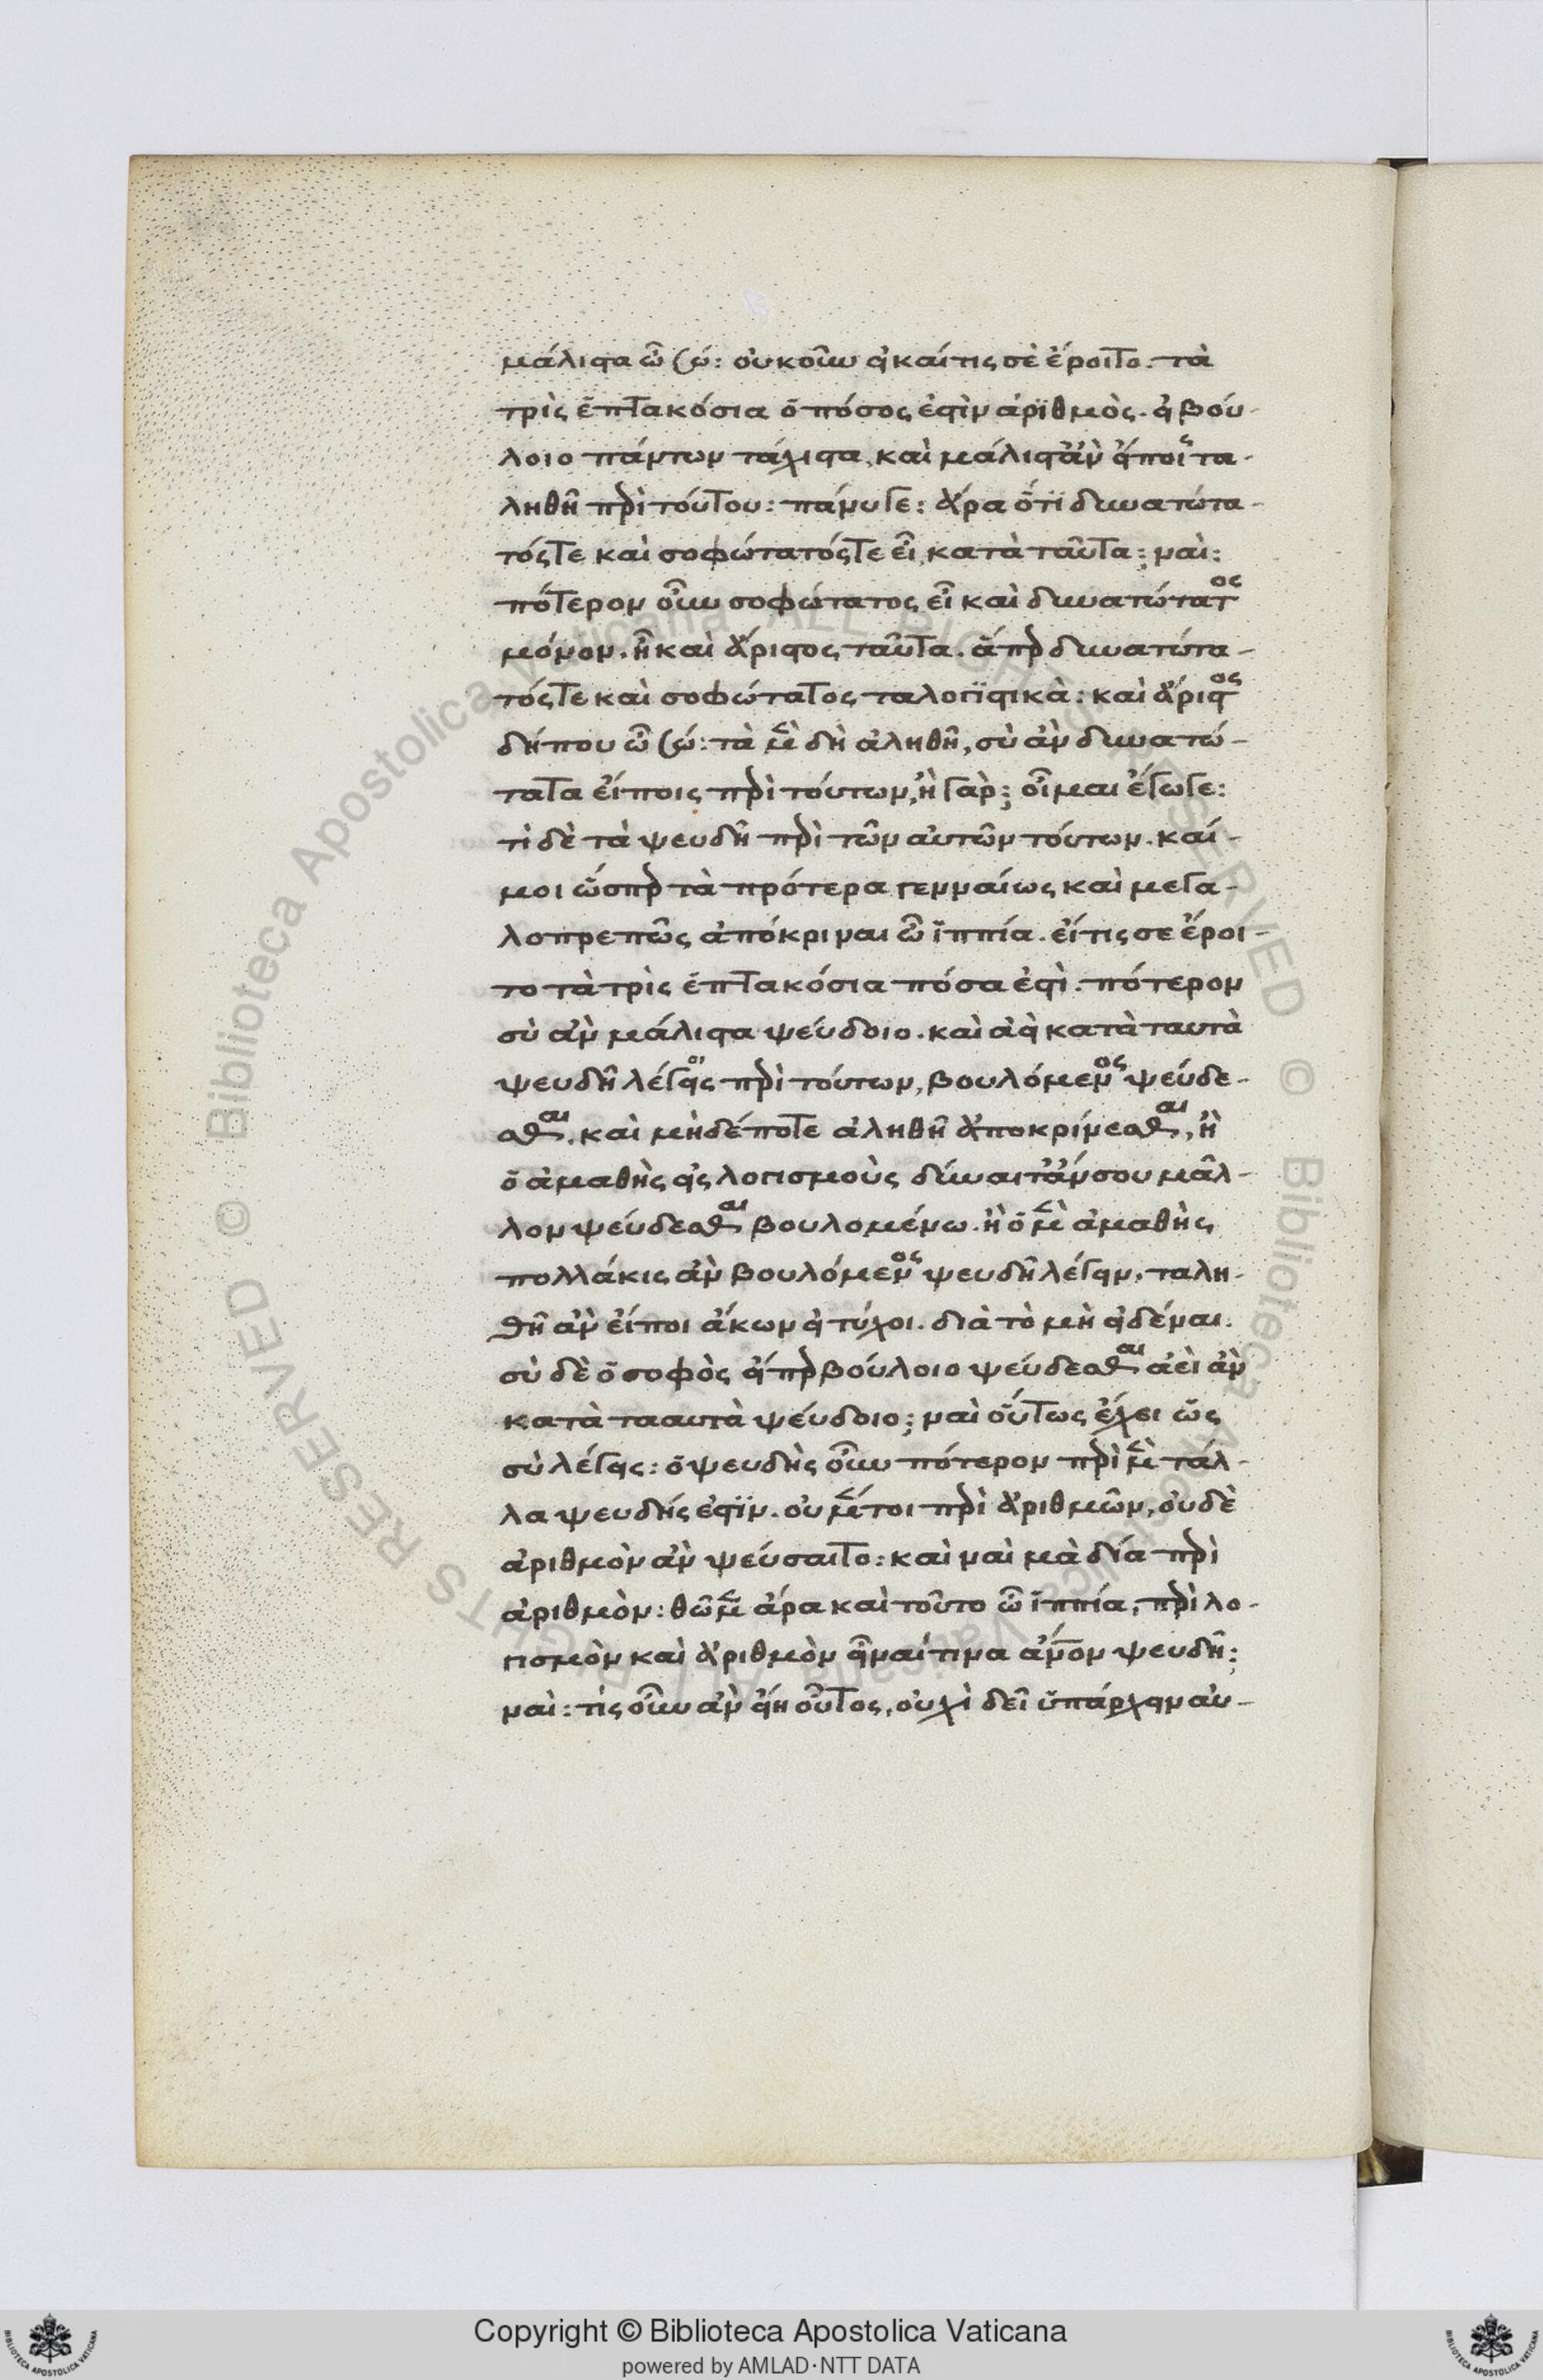 μάλιστα ὦ Σώ: οὐκοῦν εἰ καί τις σὲ ἔροιτο. τὰ
τρὶς ἑπτακόσια ὁπόσος ἐστὶν ἀρϊθμὸς. εἰ βού-
λοιο πάντων τάχιστα, καὶ μάλιστ' ἂν εἴποις τα-
ληθῆ περὶ τούτου: πάνυ γε: ἆρα ὅτϊ δυνατώτα-
τός τε καὶ σοφώτατός τε εἶ κατὰ ταῦτα; ναὶ:
πότερον οὖν σοφώτατος εἶ καὶ δυνατώτατος
μόνον. ἢ καὶ ἄριστος ταῦτα. ἅπερ δυνατώτα-
τός τε καὶ σοφώτατος ταλογϊστικὰ: καὶ ἄριστος
δήπου ὦ Σώ: τὰ μὲν δὴ ἀληθῆ, σὺ ἂν δυνατώ-
τατα εἴποις περὶ τούτων, ἢ γάρ; οἶμαι ἔγωγε:
τὶ δὲ τὰ ψευδῆ περὶ τῶν αὐτῶν τούτων. καί-
μοι ὥσπερ τὰ πρότερα γενναίως καὶ μεγα-
λοπρεπῶς ἀπόκριναι ὦ ἱππία. εἴ τις σε ἔροι-
το τὰ τρὶς ἑπτακόσια πόσα ἐστὶ. πότερον
σὺ ἂν μάλιστα ψεύδοιο. καὶ ἀεὶ κατὰ ταυτὰ
ψευδῆ λέγοις περὶ τούτων, βουλόμενος ψεύδε-
σθαι. καὶ μηδέποτε ἀληθῆ ἀποκρίνεσθαι, ἢ
ὁ ἀμαθὴς εἰς λογισμοὺς δύναιτ' ἄν σου μᾶλ-
λον ψεύδεσθαι βουλομένω. ἢ ὁ μὲν ἀμαθὴς
πολλάκις ἂν βουλόμενος ψευδῆ λέγειν, ταλη-
θῆ ἂν εἴποι ἄκων εἰ τύχοι. διὰ τὸ μὴ εἰδέναι.
σὺ δὲ ὁ σοφὸς εἴπερ βούλοιο ψεύδεσθαι ἀεὶ ἂν
κατὰ τααυτὰ ψεύδοιο; ναὶ οὕτως ἔχει ὥς
σὺ λέγεις: ὁ ψευδὴς οὖν πότερον περὶ μὲν τάλ-
λα ψευδής ἐστϊν. οὐ μέντοι περὶ ἀριθμῶν, οὐδὲ
ἀριθμὸν ἂν ψεύσαιτο: καὶ ναὶ μὰ δία περὶ
ἀριθμὸν: θῶμεν ἄρα καὶ τοῦτο ὦ ἱππία, περὶ λο-
γισμὸν καὶ ἀριθμὸν εἶναί τινα ἄνον ψευδῆ;
ναὶ: τίς οὖν ἂν εἴη οὗτος, οὐχὶ δεῖ ὑπάρχειν αὐ-
Copyright © Biblioteca Apostolica Vaticana
powered by AMLAD·NTT DATA